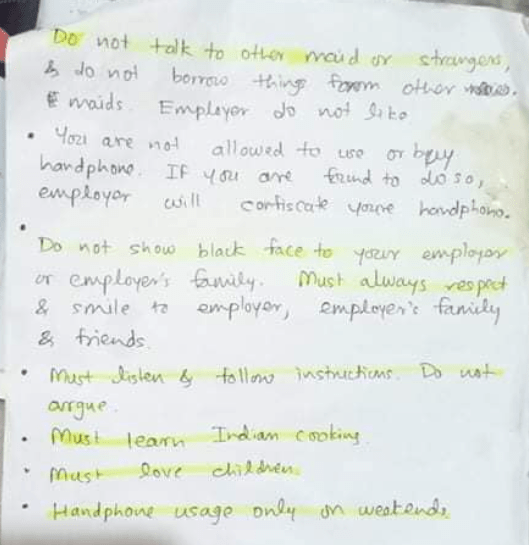 Do not talk to other maid or strangers,
& do not borrow things from other
maids. Employer do not like
• You are not allowed to use or buy
handphone. IF you are found to do so,
employer will confiscate youre handphone.
•
Do not show black face to your employer
or employer's family. Must always respect
& smile to employer, employer's family
& friends.
• Must listen & follow instructions. Do not
argue.
• Must learn Indian cooking
• Must love children.
• Handphone usage only on weekends